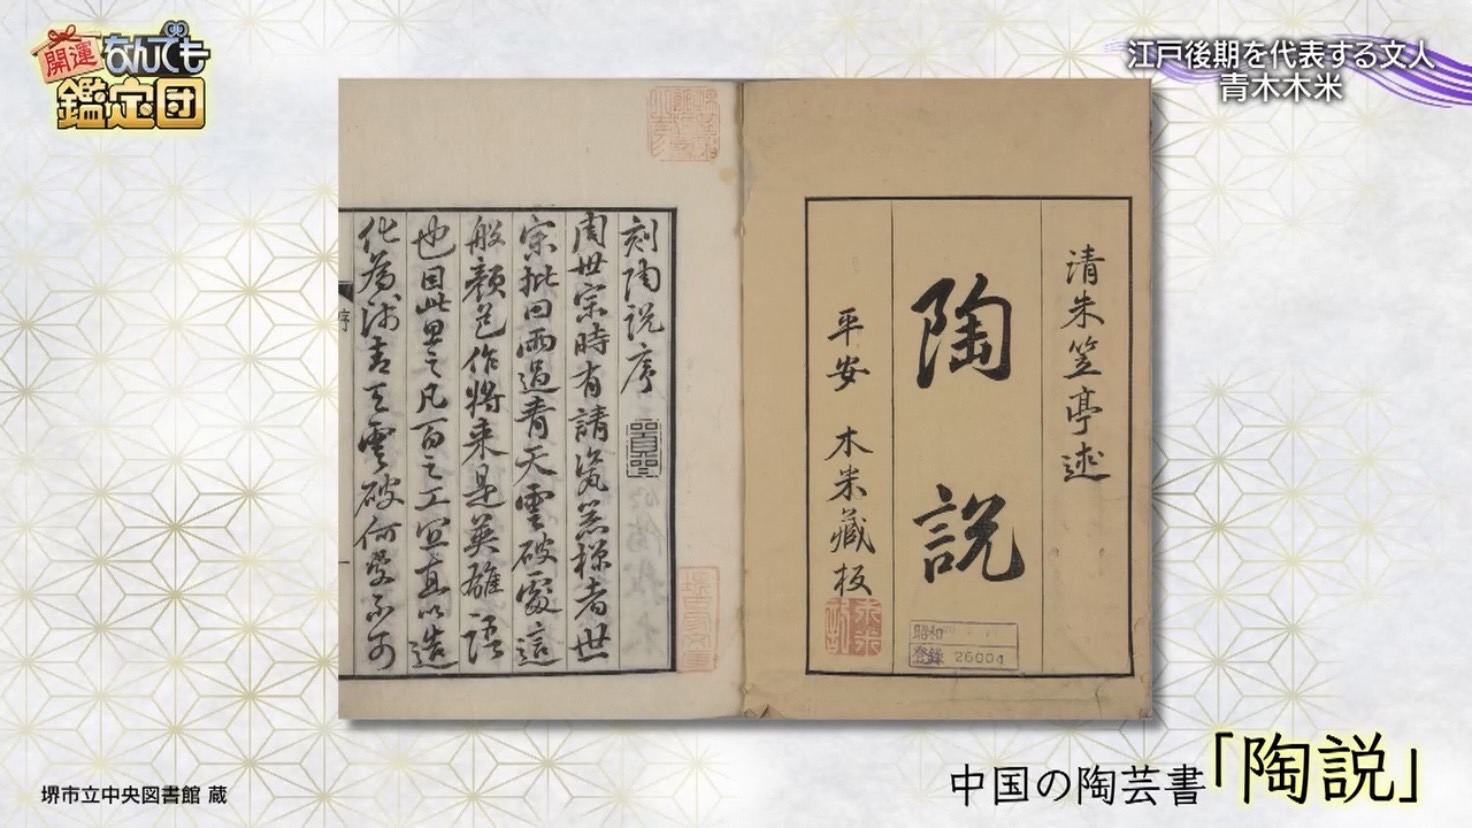 開運
なんでも
鑑定団
江戸後期を代表する文人
青木木米
清朱笠亭述
陶説
平安 木米藏板
昭和
登録 26004
刻陶説序
周世宗時有請瓷器樣者世
宗批曰雨過青天雲破處這
般顏色作將來是英雄語
也因此思之凡百之工宜直以造
化為師青天雲破何
序
中国の陶芸書「陶説」
堺市立中央図書館 蔵